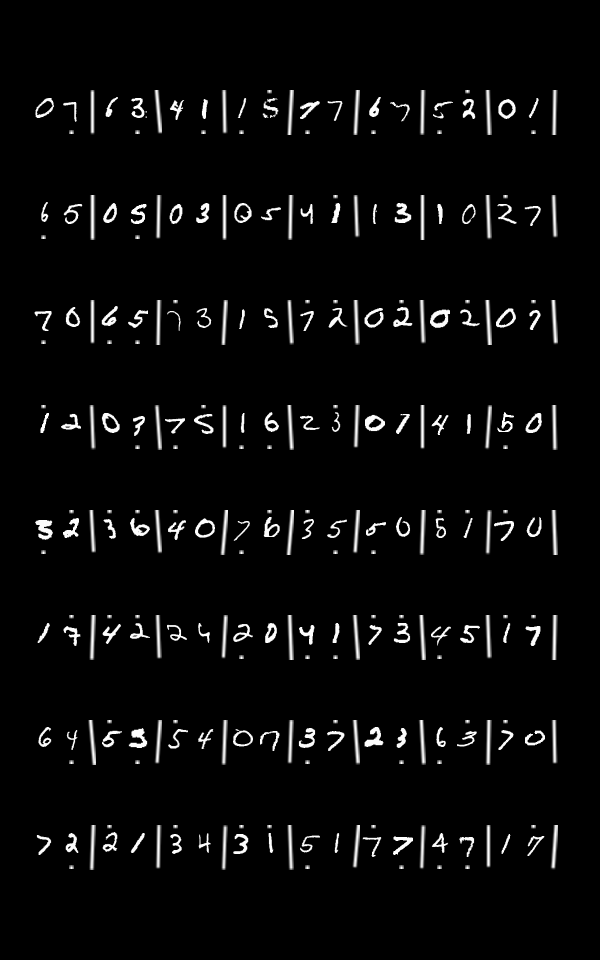 0 7 | 6 3 | 4 1 | 1 5 | 7 7 | 6 7 | 5 2 | 0 1 |
6 5 | 0 5 | 0 3 | 0 5 | 4 1 | 1 3 | 1 0 | 2 7 |
7 0 | 6 5 | 7 3 | 1 5 | 7 2 | 0 2 | 0 2 | 0 7 |
1 2 | 0 7 | 7 5 | 1 6 | 2 3 | 0 7 | 4 1 | 5 0 |
5 2 | 3 6 | 4 0 | 7 6 | 3 5 | 5 0 | 5 1 | 7 0 |
1 7 | 4 2 | 2 4 | 2 0 | 4 1 | 7 3 | 4 5 | 1 7 |
6 4 | 5 5 | 5 4 | 0 7 | 3 7 | 2 3 | 6 3 | 7 0 |
7 2 | 2 1 | 3 4 | 3 1 | 5 1 | 7 7 | 4 7 | 1 7 |